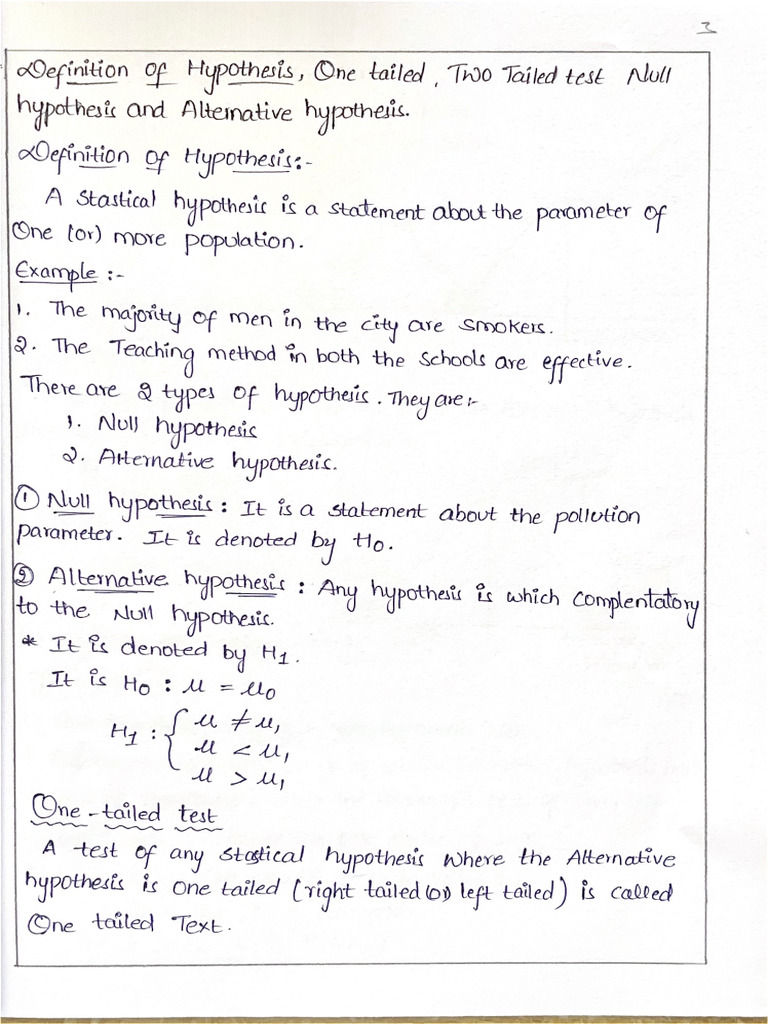 3
Definition of Hypothesis, One tailed, Two Tailed test Null
hypothesis and Alternative hypothesis.
Definition of Hypothesis:-
A Stastical hypothesis is a statement about the parameter of
One (or) more population.
Example :-
1. The majority of men in the city are smokers.
2. The Teaching method in both the schools are effective.
There are 2 types of hypothesis. They are:-
1. Null hypothesis
2. Alternative hypothesis.
① Null hypothesis : It is a statement about the pollution
parameter. It is denoted by H₀.
② Alternative hypothesis : Any hypothesis is which complentatory
to the Null hypothesis.
* It is denoted by H₁.
It is H₀ : μ = μ₀
H₁ : { μ ≠ μ₁
μ < μ₁
μ > μ₁
One-tailed test
A test of any stastical hypothesis where the Alternative
hypothesis is one tailed (right tailed (or) left tailed) is called
One tailed Text.